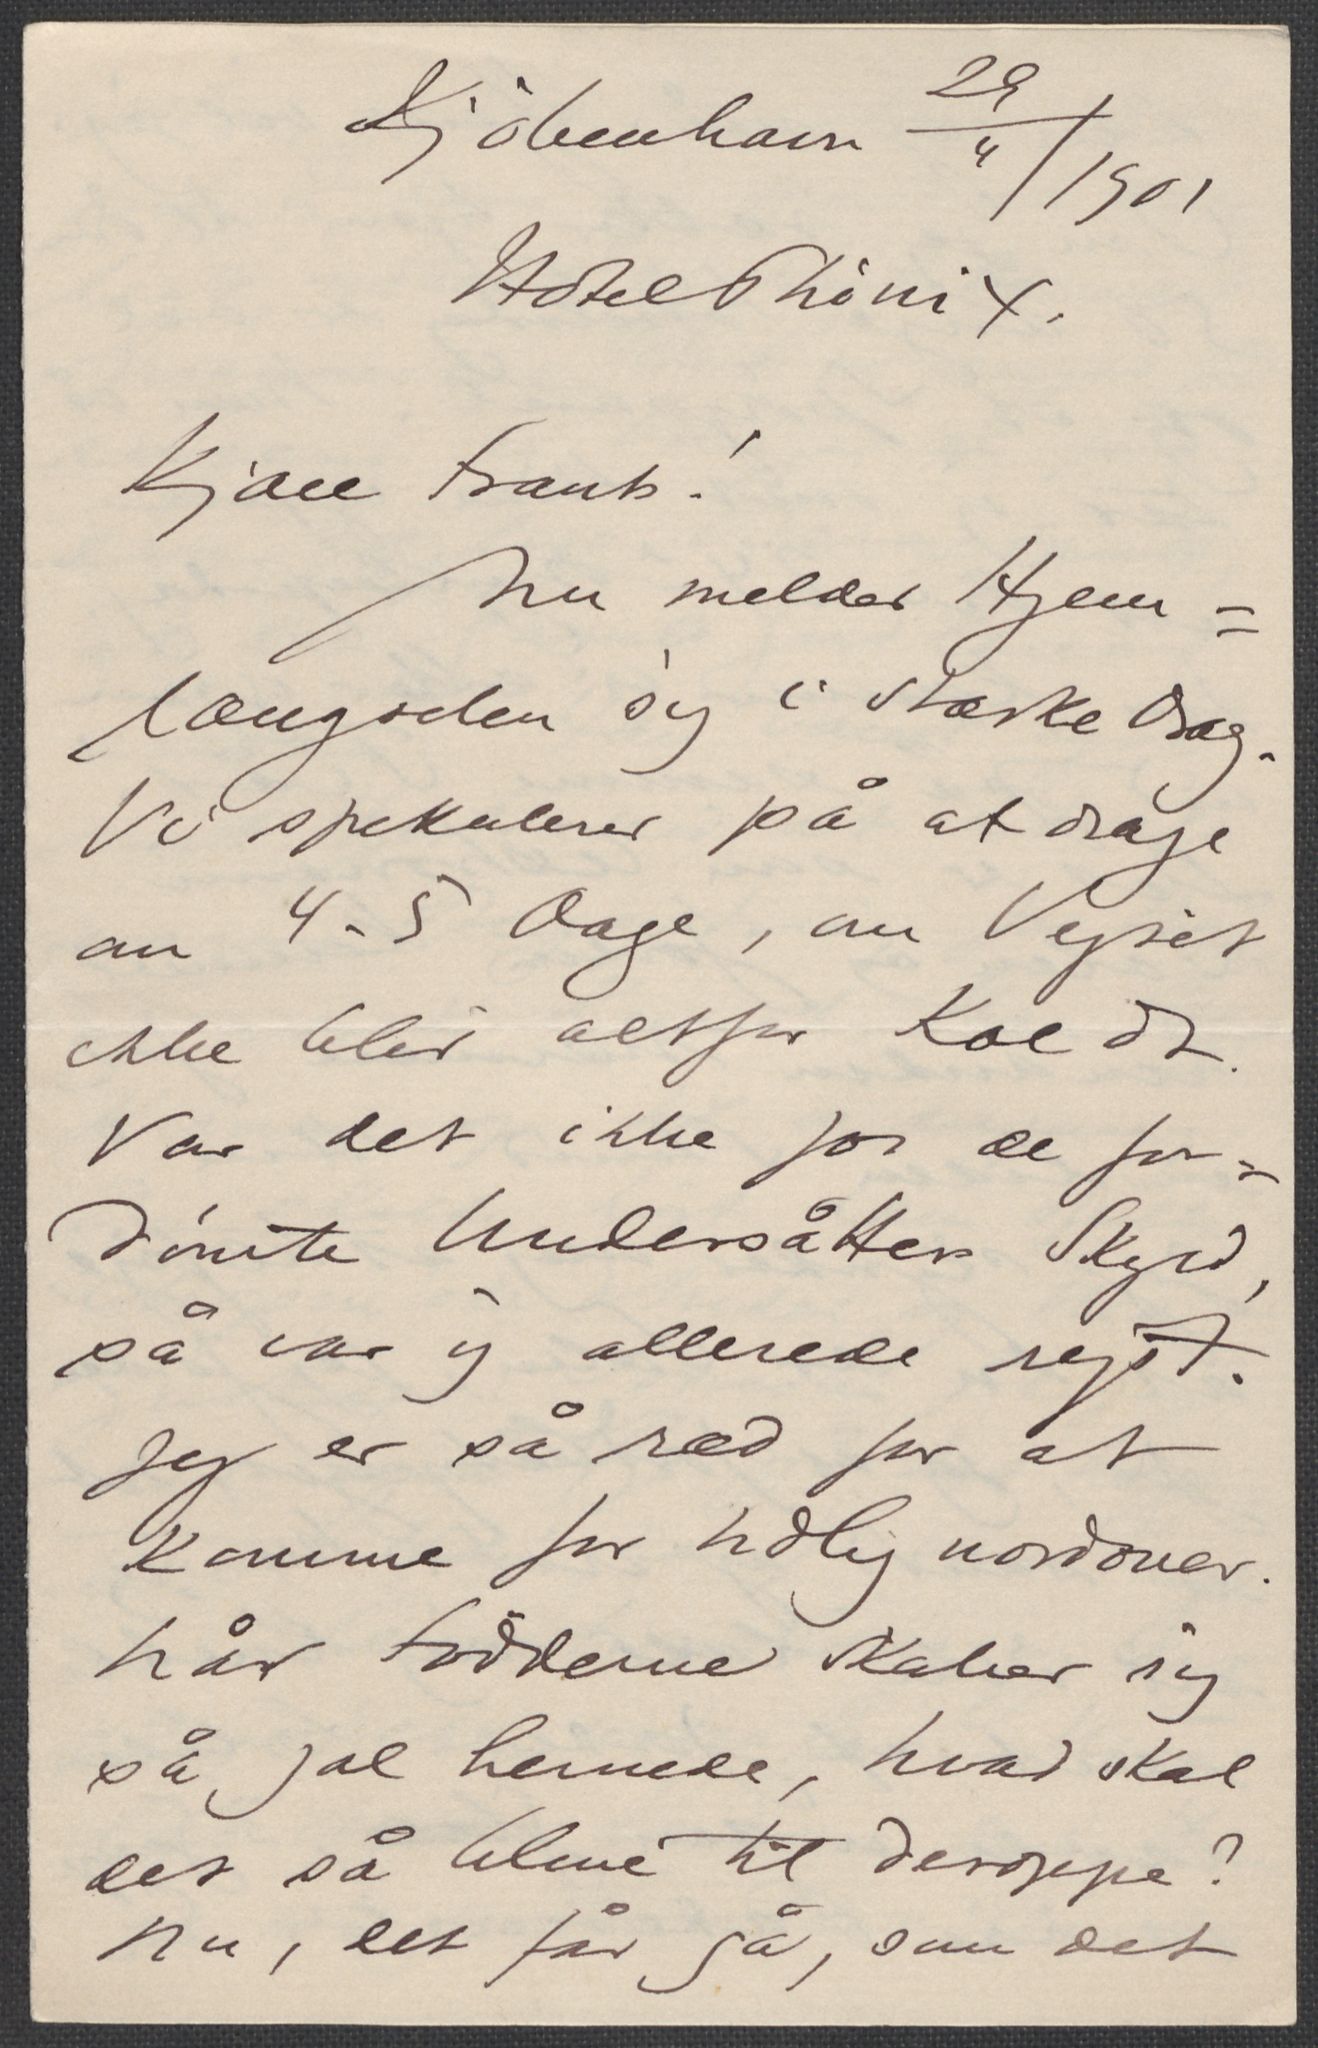 Kjöbenhavn 29/4/1901
Hotel Phönix.
Kjære Frants!
Nu melder Hjem=
længselen sig i stærke Drag.
Vi spekulerer på at drage
om 4-5 Dage, om Vejret
ikke blir altfor koldt.
Var det ikke for de for=
dömte Undersåtters Skyld,
så var jeg allerede rejst.
Jeg er så ræd for at
komme for tidlig nordover.
Når Födderne skaber sig
så gal hernede, hvad skal
det så blive til deroppe?
Nu, det får gå, som det